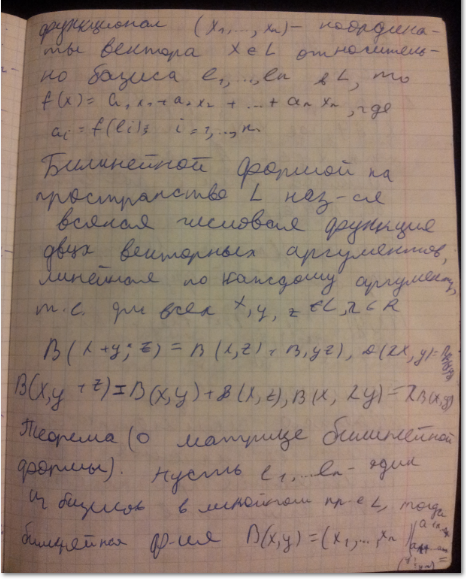 функционал (x₁,...,xₙ) – координа-
ты вектора x∈L относитель-
но базиса e₁,...,eₙ в L, то
f(x) = a₁x₁+a₂x₂+...+aₙxₙ, где
aᵢ = f(eᵢ), i=1,...,n
Билинейной формой на
пространстве L наз-ся
всякая числовая функция
двух векторных аргументов,
линейная по каждому аргументу,
т.е. для всех x,y,z∈L, λ∈R
B(x+y; z) = B(x,z)+B(y,z), B(λx,y)=
B(x,y+z)=B(x,y)+B(x,z), B(x,λy)=λB(x,y)
Теорема (о матрице билинейной
формы). Пусть e₁,...eₙ – один
из базисов в линейном пр-е L, тогда
билинейная ф-ия B(x,y)=(x₁,...,xₙ)